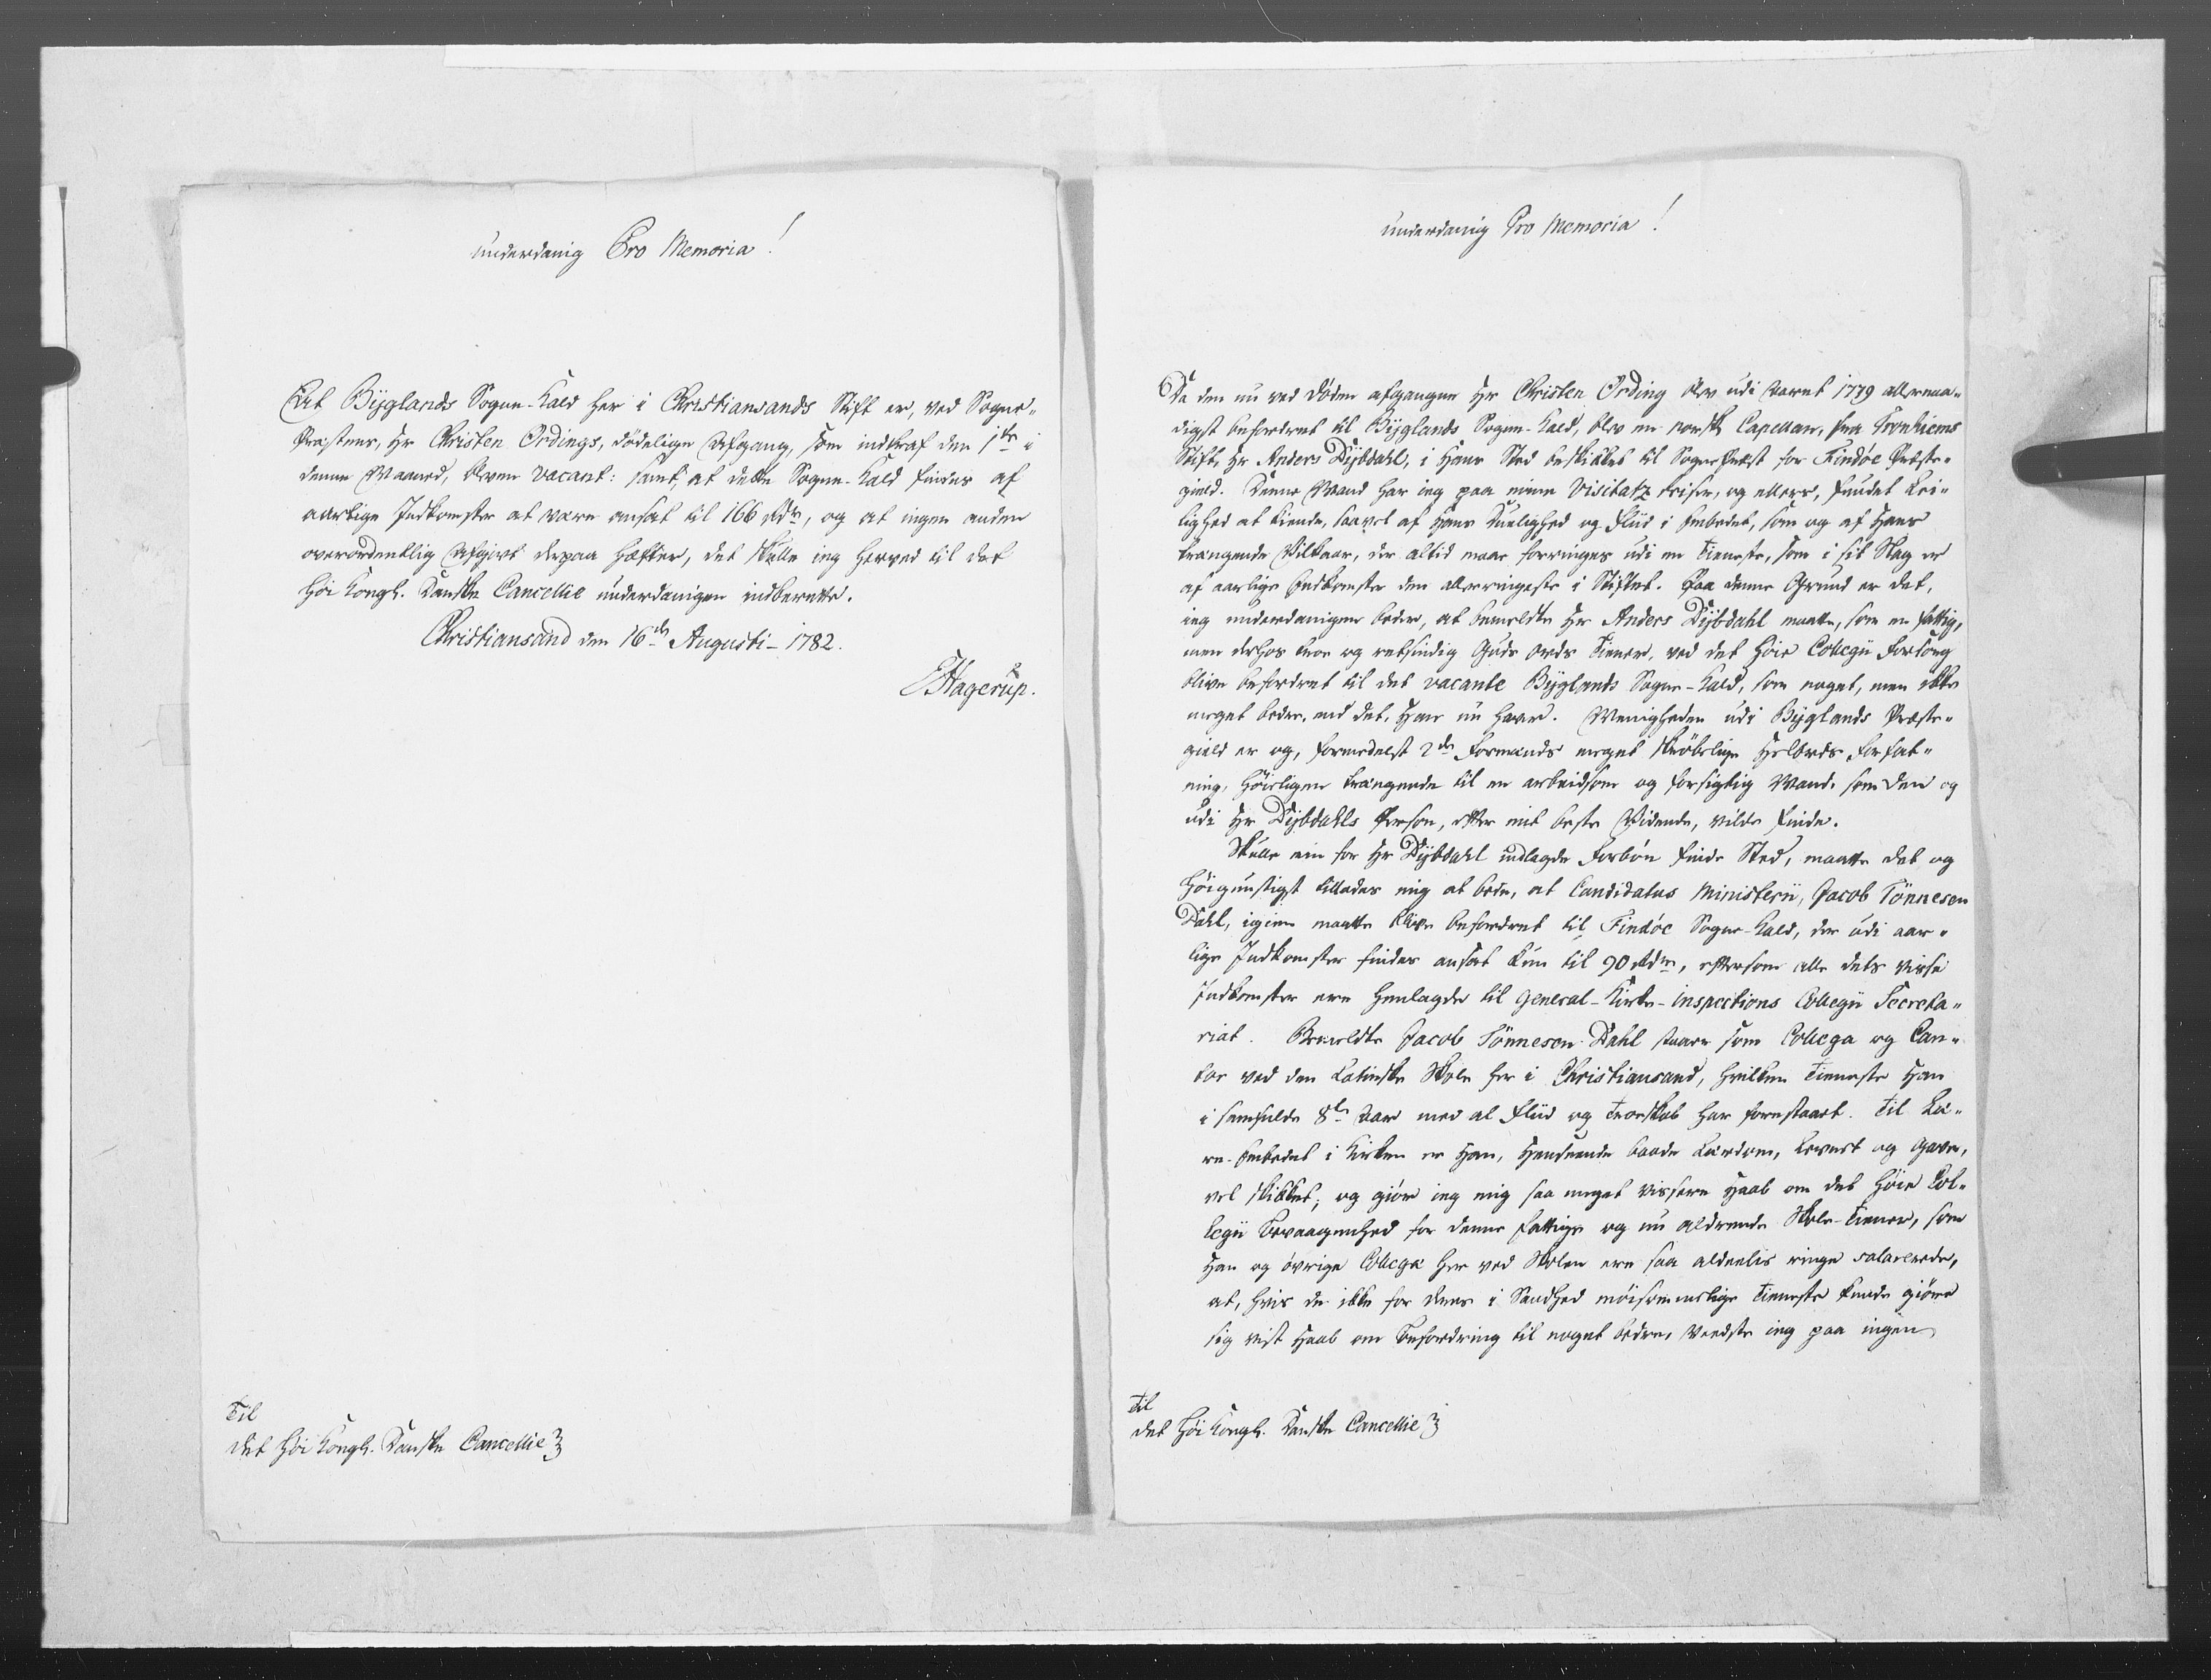 underdanig Pro Memoria!
At Byglands Sogne-Kald her i Christiansands Stift er, ved Sogne-
Præstens, Hr Christen Ordings, dödelige Afgang, som indtraf den 1te i
denne Maaned, bleven vacant: samt, at dette Sogne-Kald findes af
aarlige Indkomster at være ansat til 166 Rdr, og at ingen anden
overordentlig Afgivt derpaa hæfter, det skulle ieg herved til det
Höi Kongl. Danske Cancellie underdanigen indberette.
Christiansand den 16de Augusti 1782.
EHagerup.
Til
det Höi Kongl. Danske Cancellie
underdanig Pro Memoria!
Da den nu ved Döden afgangne Hr Christen Ording blev udi Aaret 1779 allernaa-
digst befordret til Byglands Sogne-Kald, blev en norsk Capellan, fra Tronhiems
Stift, Hr Anders Dybdahl, i Hans Sted beskikket til SognePræst for Findöe Præste-
gield. Denne Mand har ieg paa mine Visitatz Reiser, og ellers, fundet Lei-
lighed at kiende, saavel af Hans Duelighed og Fliid i Embedet, som og af Hans
trængende Vilkaar, der altid maae forringes udi en Tieneste, som i sit Slag er
af aarlige Indkomster den allerringeste i Stiftet. Paa denne Grund er det,
ieg underdanigen beder, at bemeldte Hr Anders Dybdahl maatte, som en fattig,
men derhos troe og retsindig Guds Ords Tiener, ved det Höie Collegii Forsorg
blive befordret til det vacante Byglands Sogne-Kald, som noget, men ikke
meget bedre, end det, Han nu haver. Menigheden udi Byglands Præste-
gield er og, formedelst 2de Formænds meget skröbelige Helbreds Forfat-
ning, höiligen trængende til en arbeidsom og forsigtig Mand, som den og
udi Hr Dybdahls Person, efter mit beste Vidende, vilde finde.
Skulle min for Hr Dybdahl indlagde Forbön finde Sted, maatte det og
höigunstigst tillades mig at bede, at Candidatus Ministerii, Jacob Tönnesen
Dahl, igien maatte blive befordret til Findöe Sogne-Kald, der udi aar-
lige Indkomster findes ansat kun til 90 Rdr, eftersom alle dets visse
Indkomster ere henlagde til General-Kirke-Inspections Collegii Secreta-
riat. Bemeldte Jacob Tönnesen Dahl staaer som Collega og Can-
tor ved den Latinske Skole her i Christiansand, hvilken Tieneste Han
i samfulde 8te Aar med al Fliid og Troeskab har forestaaet. Til Læ-
re-Embedet i Kirken er Han, henseende baade Lærdom, Levnet og Gaver,
vel skikket; og giör ieg mig saa meget vissere Haab om det Höie Col-
legii Bevaagenhed for denne fattige og nu aldrende Skole-Tiener, som
Han og övrige Collegæ her ved Skolen ere saa aldeeles ringe salarerede,
at, hvis de ikke for deres i Sandhed möisommelige Tieneste kunde giöre
sig vist Haab om Befordring til noget bedre, veedste ieg paa ingen
Til
det Höi Kongl. Danske Cancellie